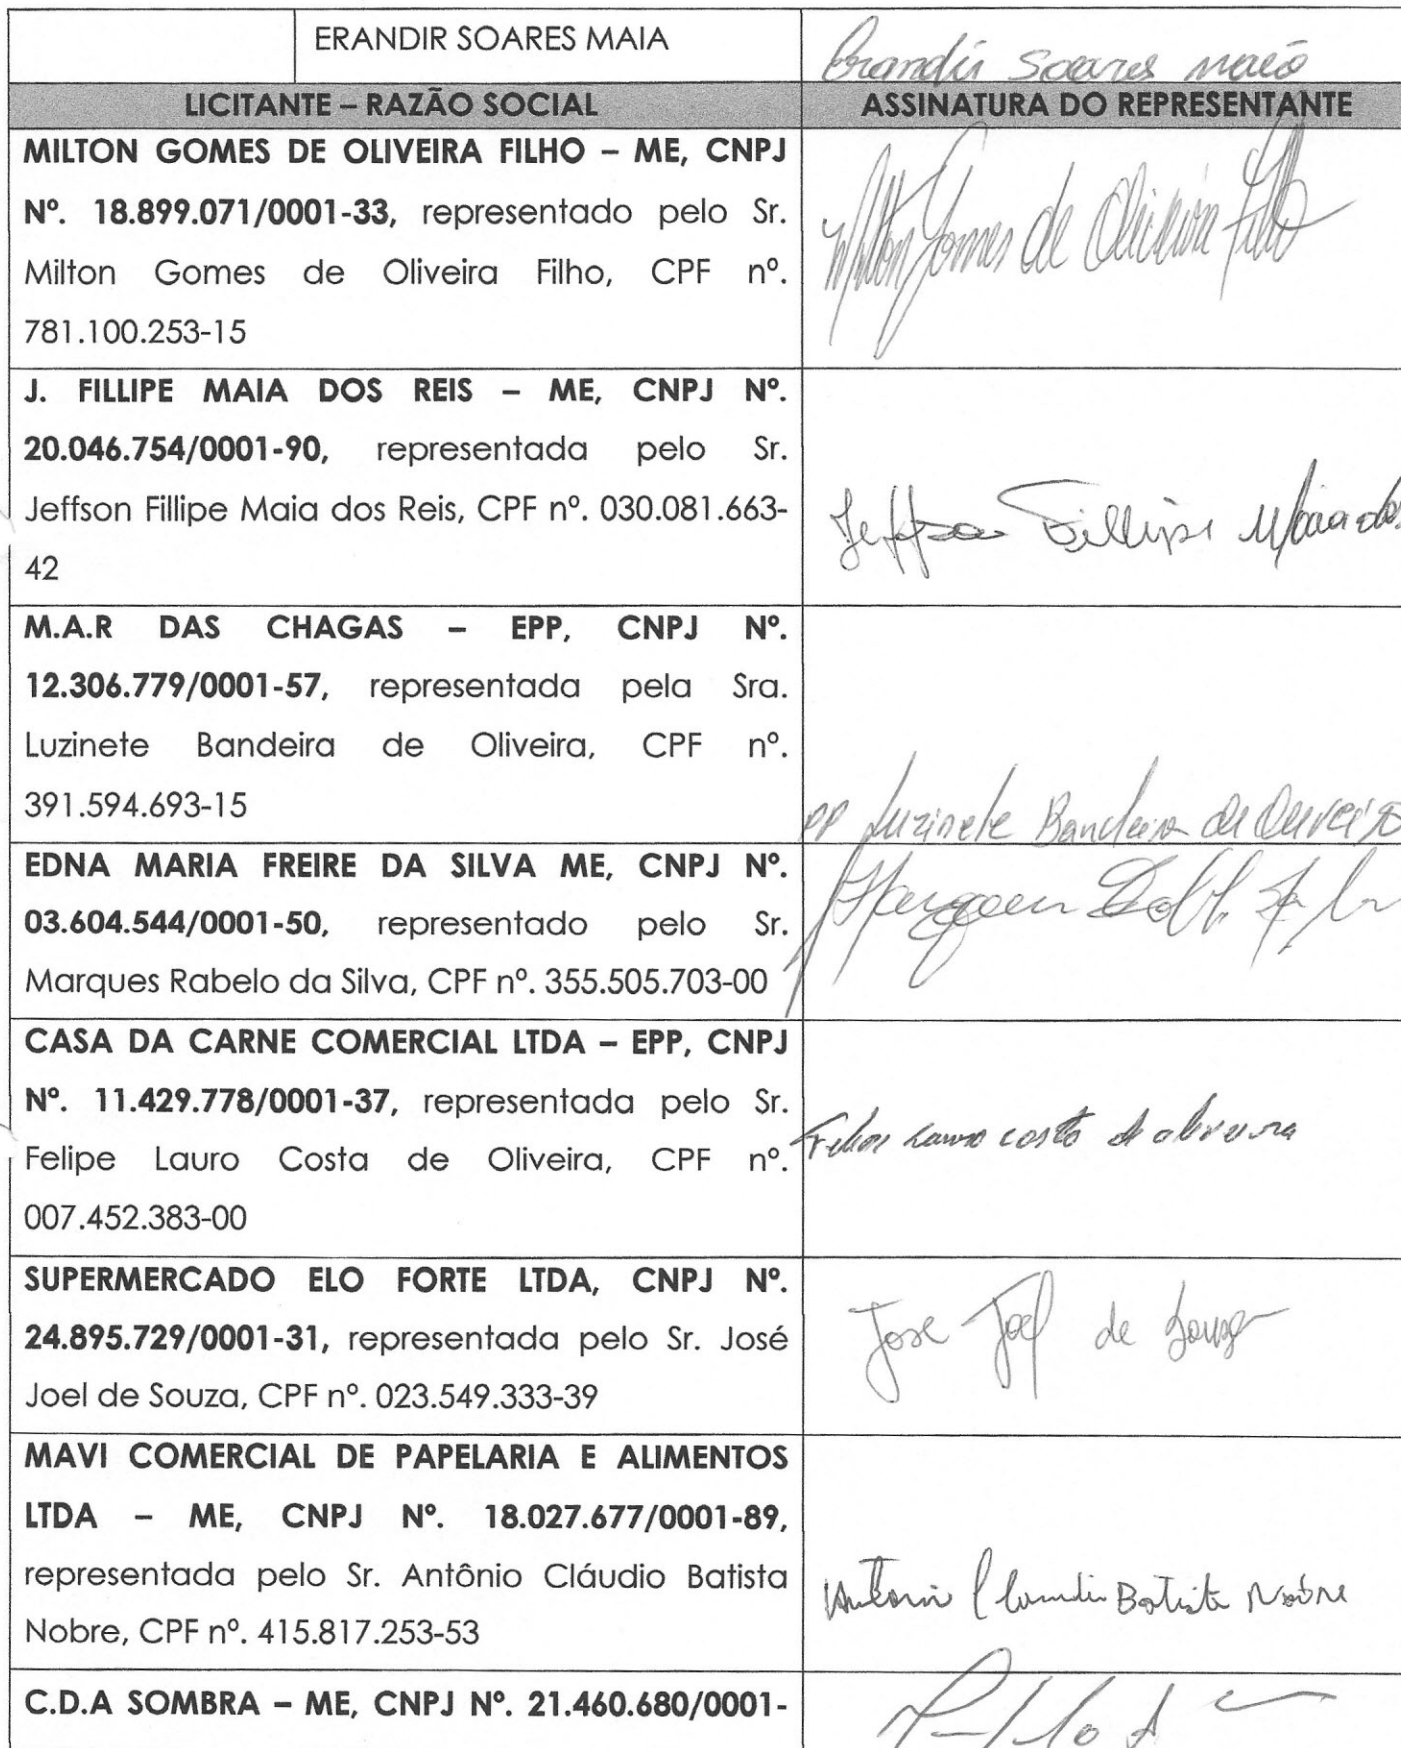 ERANDIR SOARES MAIA
Erandir Soares Maia
LICITANTE – RAZÃO SOCIAL
ASSINATURA DO REPRESENTANTE
MILTON GOMES DE OLIVEIRA FILHO – ME, CNPJ
Nº. 18.899.071/0001-33, representado pelo Sr.
Milton Gomes de Oliveira Filho, CPF nº.
781.100.253-15
Milton Gomes de Oliveira Filho
J. FILLIPE MAIA DOS REIS – ME, CNPJ Nº.
20.046.754/0001-90, representada pelo Sr.
Jeffson Fillipe Maia dos Reis, CPF nº. 030.081.663-
42
Jeffson Fillipe Maia dos
M.A.R DAS CHAGAS – EPP, CNPJ Nº.
12.306.779/0001-57, representada pela Sra.
Luzinete Bandeira de Oliveira, CPF nº.
391.594.693-15
pp Luzinete Bandeira de Oliveira
EDNA MARIA FREIRE DA SILVA ME, CNPJ Nº.
03.604.544/0001-50, representado pelo Sr.
Marques Rabelo da Silva, CPF nº. 355.505.703-00
CASA DA CARNE COMERCIAL LTDA – EPP, CNPJ
Nº. 11.429.778/0001-37, representada pelo Sr.
Felipe Lauro Costa de Oliveira, CPF nº.
007.452.383-00
Felipe Lauro costa de oliveira
SUPERMERCADO ELO FORTE LTDA, CNPJ Nº.
24.895.729/0001-31, representada pelo Sr. José
Joel de Souza, CPF nº. 023.549.333-39
Jose Joel de Souza
MAVI COMERCIAL DE PAPELARIA E ALIMENTOS
LTDA – ME, CNPJ Nº. 18.027.677/0001-89,
representada pelo Sr. Antônio Cláudio Batista
Nobre, CPF nº. 415.817.253-53
Antonio Claudio Batista Nobre
C.D.A SOMBRA – ME, CNPJ Nº. 21.460.680/0001-